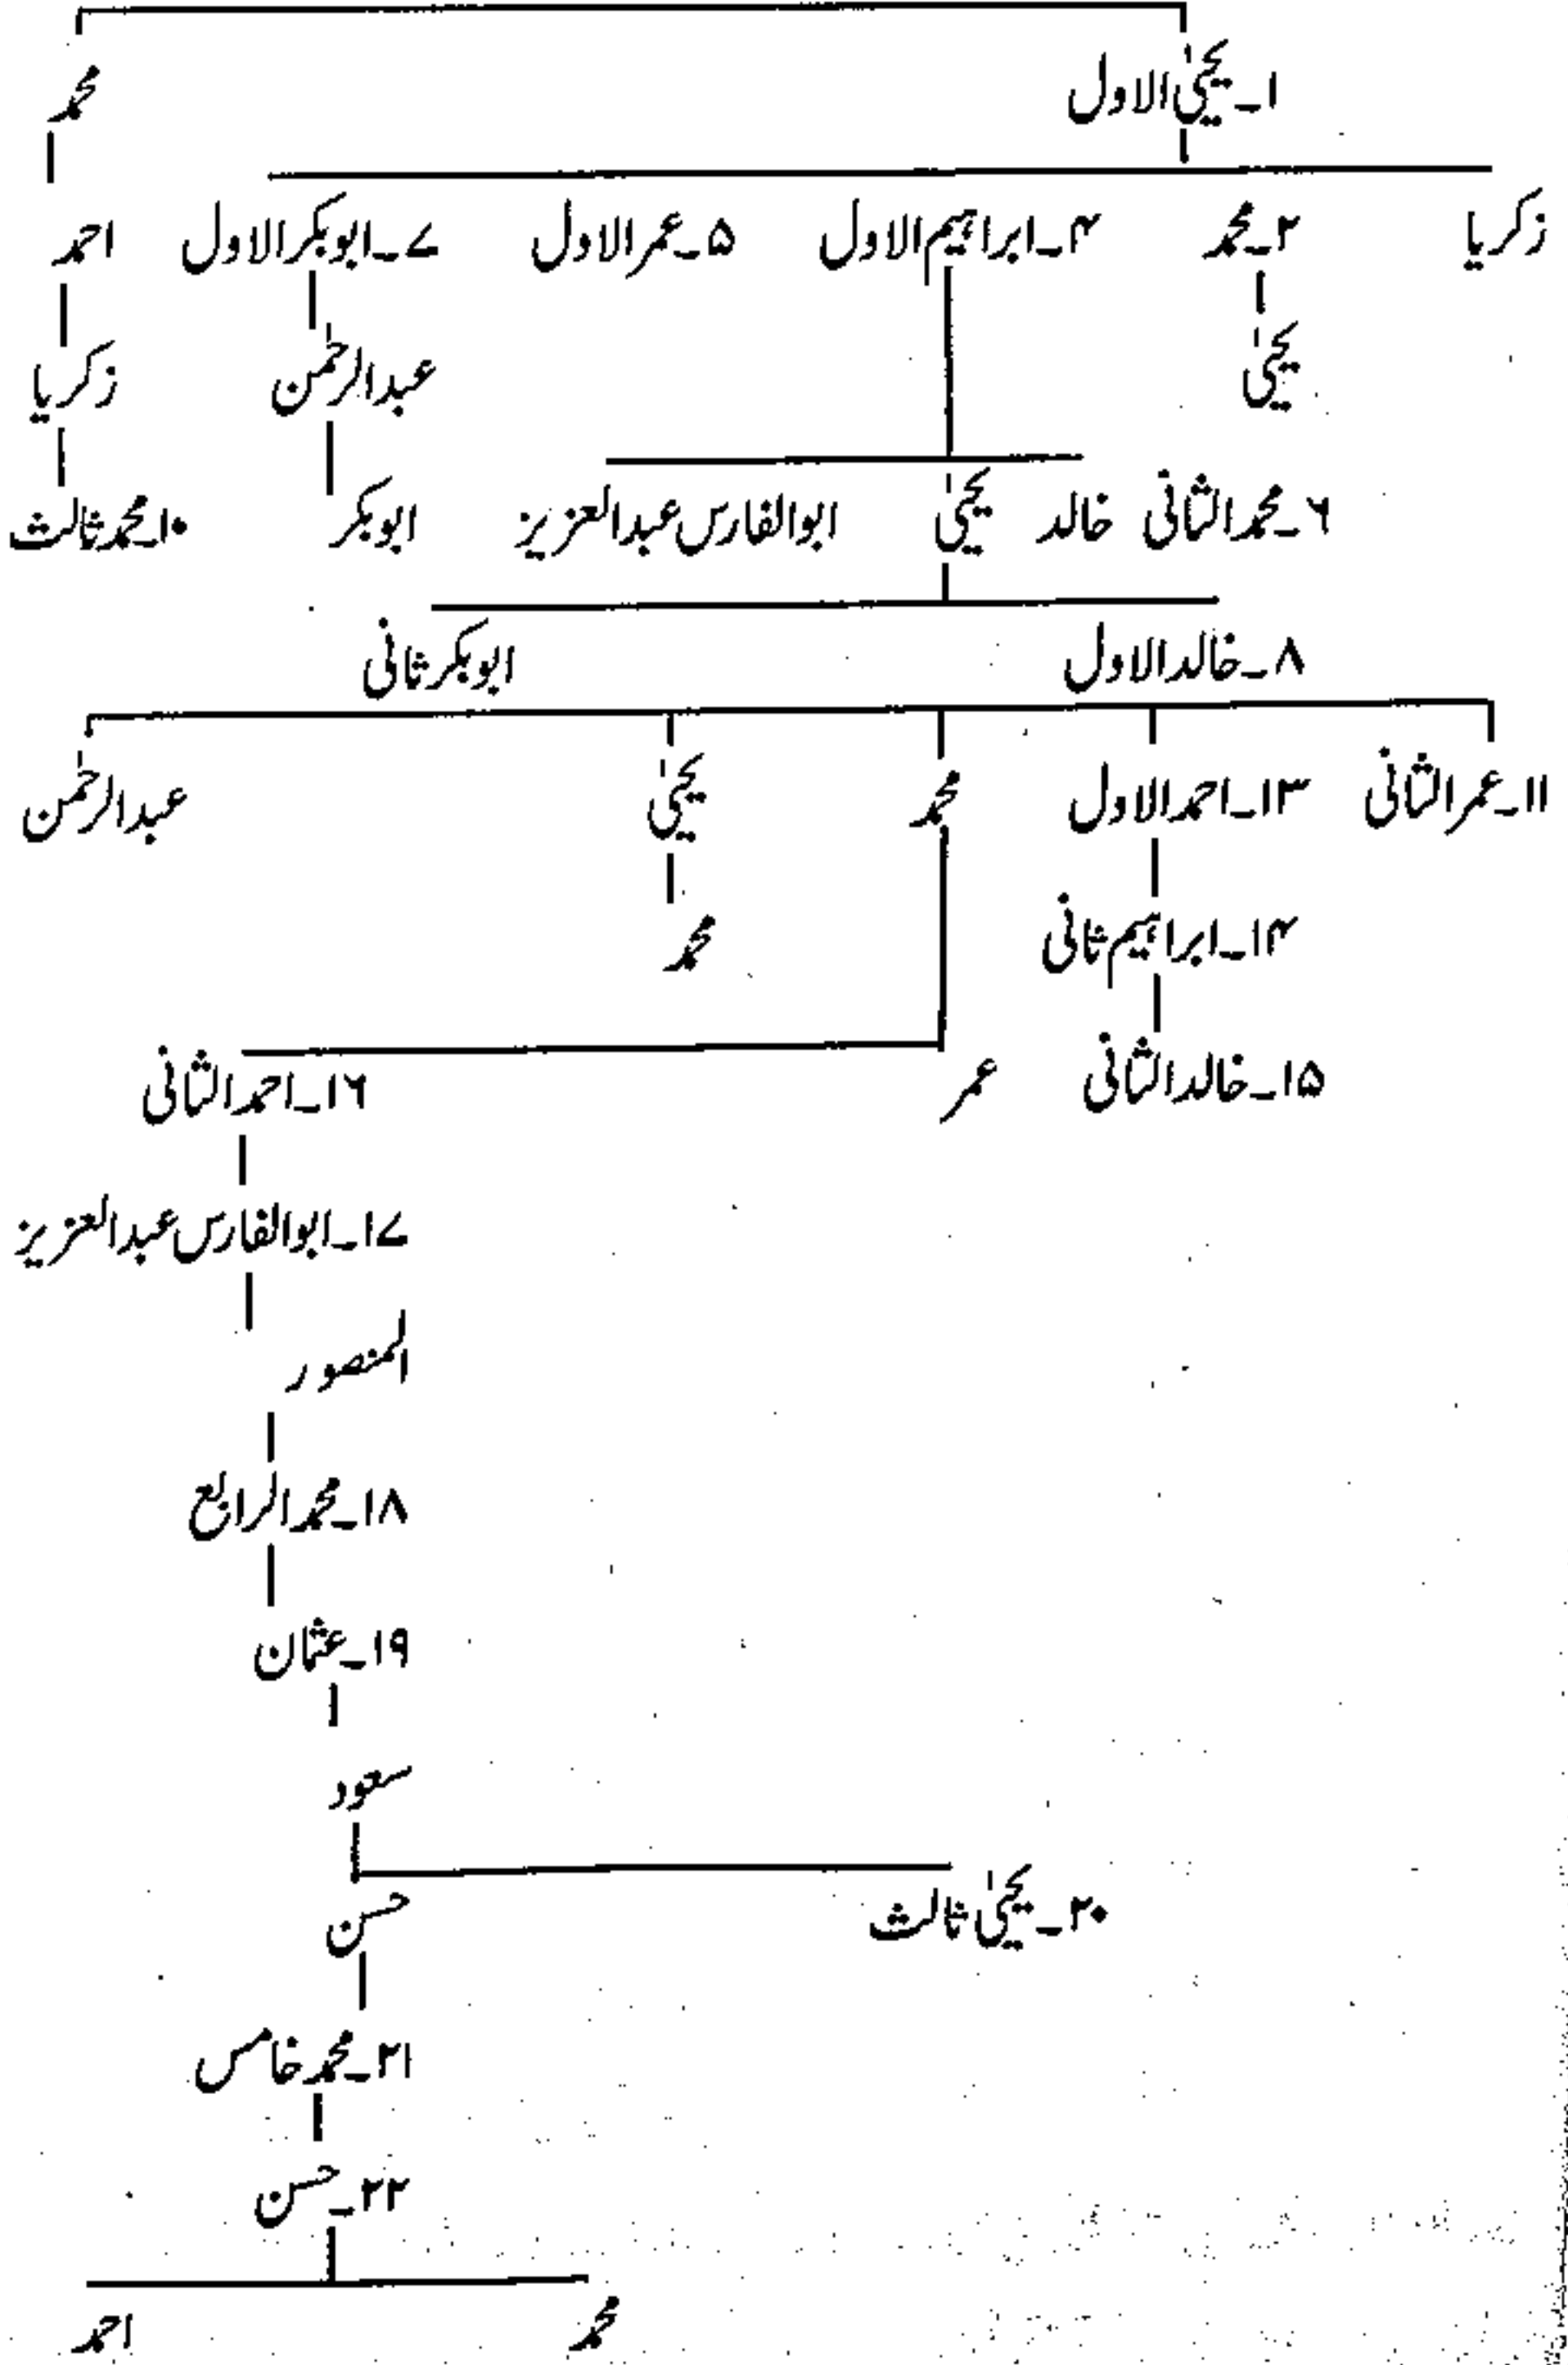 ۱۔یحییٰ الاول محمد
زکریا ۲۔محمد ۴۔ابراہیم الاول ۵۔عمر الاول ۷۔ابوبکر الاول احمد
یحییٰ عبدالرحمٰن زکریا
۶۔محمد الثانی خالد یحییٰ ابوالفارس عبدالعزیز ابوبکر ۱۰۔محمد ثالث
۸۔خالد الاول ابوبکر ثانی
۱۱۔عمر الثانی ۱۳۔احمد الاول محمد یحییٰ عبدالرحمٰن
۱۴۔ابراہیم ثانی محمد
۱۵۔خالد الثانی عمر ۱۶۔احمد الثانی
۱۷۔ابوالفارس عبدالعزیز
المنصور
۱۸۔محمد الرابع
۱۹۔عثمان
سعود
۲۰۔یحییٰ ثالث حسن
۲۱۔محمد خامس
۲۲۔حسن
محمد احمد